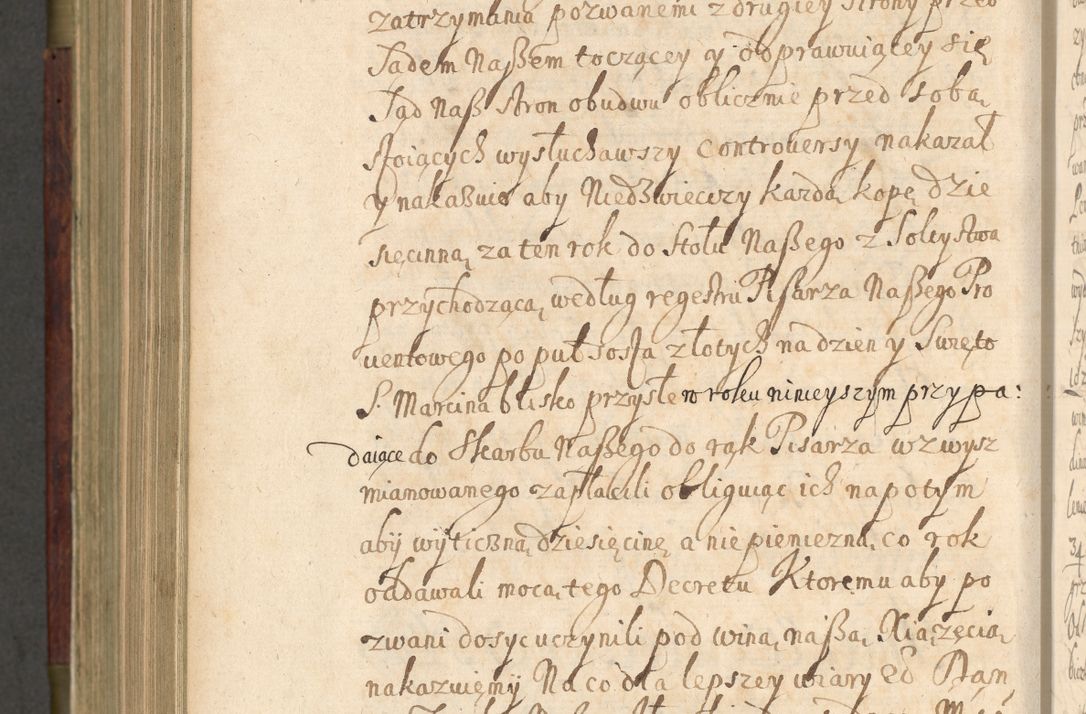 zatrzymania pozwanemi z drugiey strony przed
Sądem Naßem toczącey y odprawuiącey się
Sąd Naß stron obudwu oblicznie przed sobą
stoiących wysłuchawszy controuersy nakazał
y nakazuie aby Niedzwieccy kazdą kopę dzie
sięcinną za ten rok do Stołu Naßego z Solcystwa
przychodzącą według regestru Pisarza Naßego Pro
uentowego po puł szosta złotych na dzien y Swięto
S. Marcina blisko przyszłe w roku ninieyszym przypa:
daiące do Skarbu Naßego do rąk Pisarza wzwysz
mianowanego zapłacili obliguiąc ich napotym
aby wytyczną dziesięcinę a nie pienięzną co rok
oddawali mocą tego Decretu Ktoremu aby po
zwani dosyc uczynili pod winą naßą Xiązęcią
nakazuiemy Na co dla lepszey wiary ed Pism